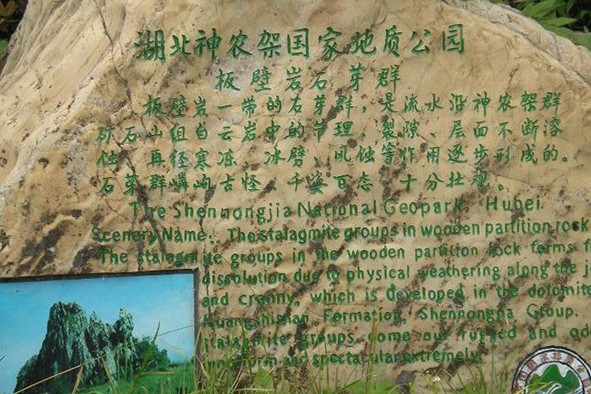 湖北神农架国家地质公园
板壁岩石芽群
板壁岩一带的石芽群，是流水沿神农架群
矿石山组白云岩中的节理、裂隙、层面不断溶
蚀，再经寒冻、冰劈、风蚀等作用逐步形成的。
石芽群嶙峋古怪，千姿百态，十分壮观。
The Shennongjia National Geopark, Hubei
Scenery Name: The stalagmite groups in wooden partition rock
The stalagmite groups in the wooden partition rock forms
dissolution due to physical weathering along the
and cranny, which is developed in the dolomite
Formation, Shennongjia Group.
groups, some are rugged and
and spectacular extremely.